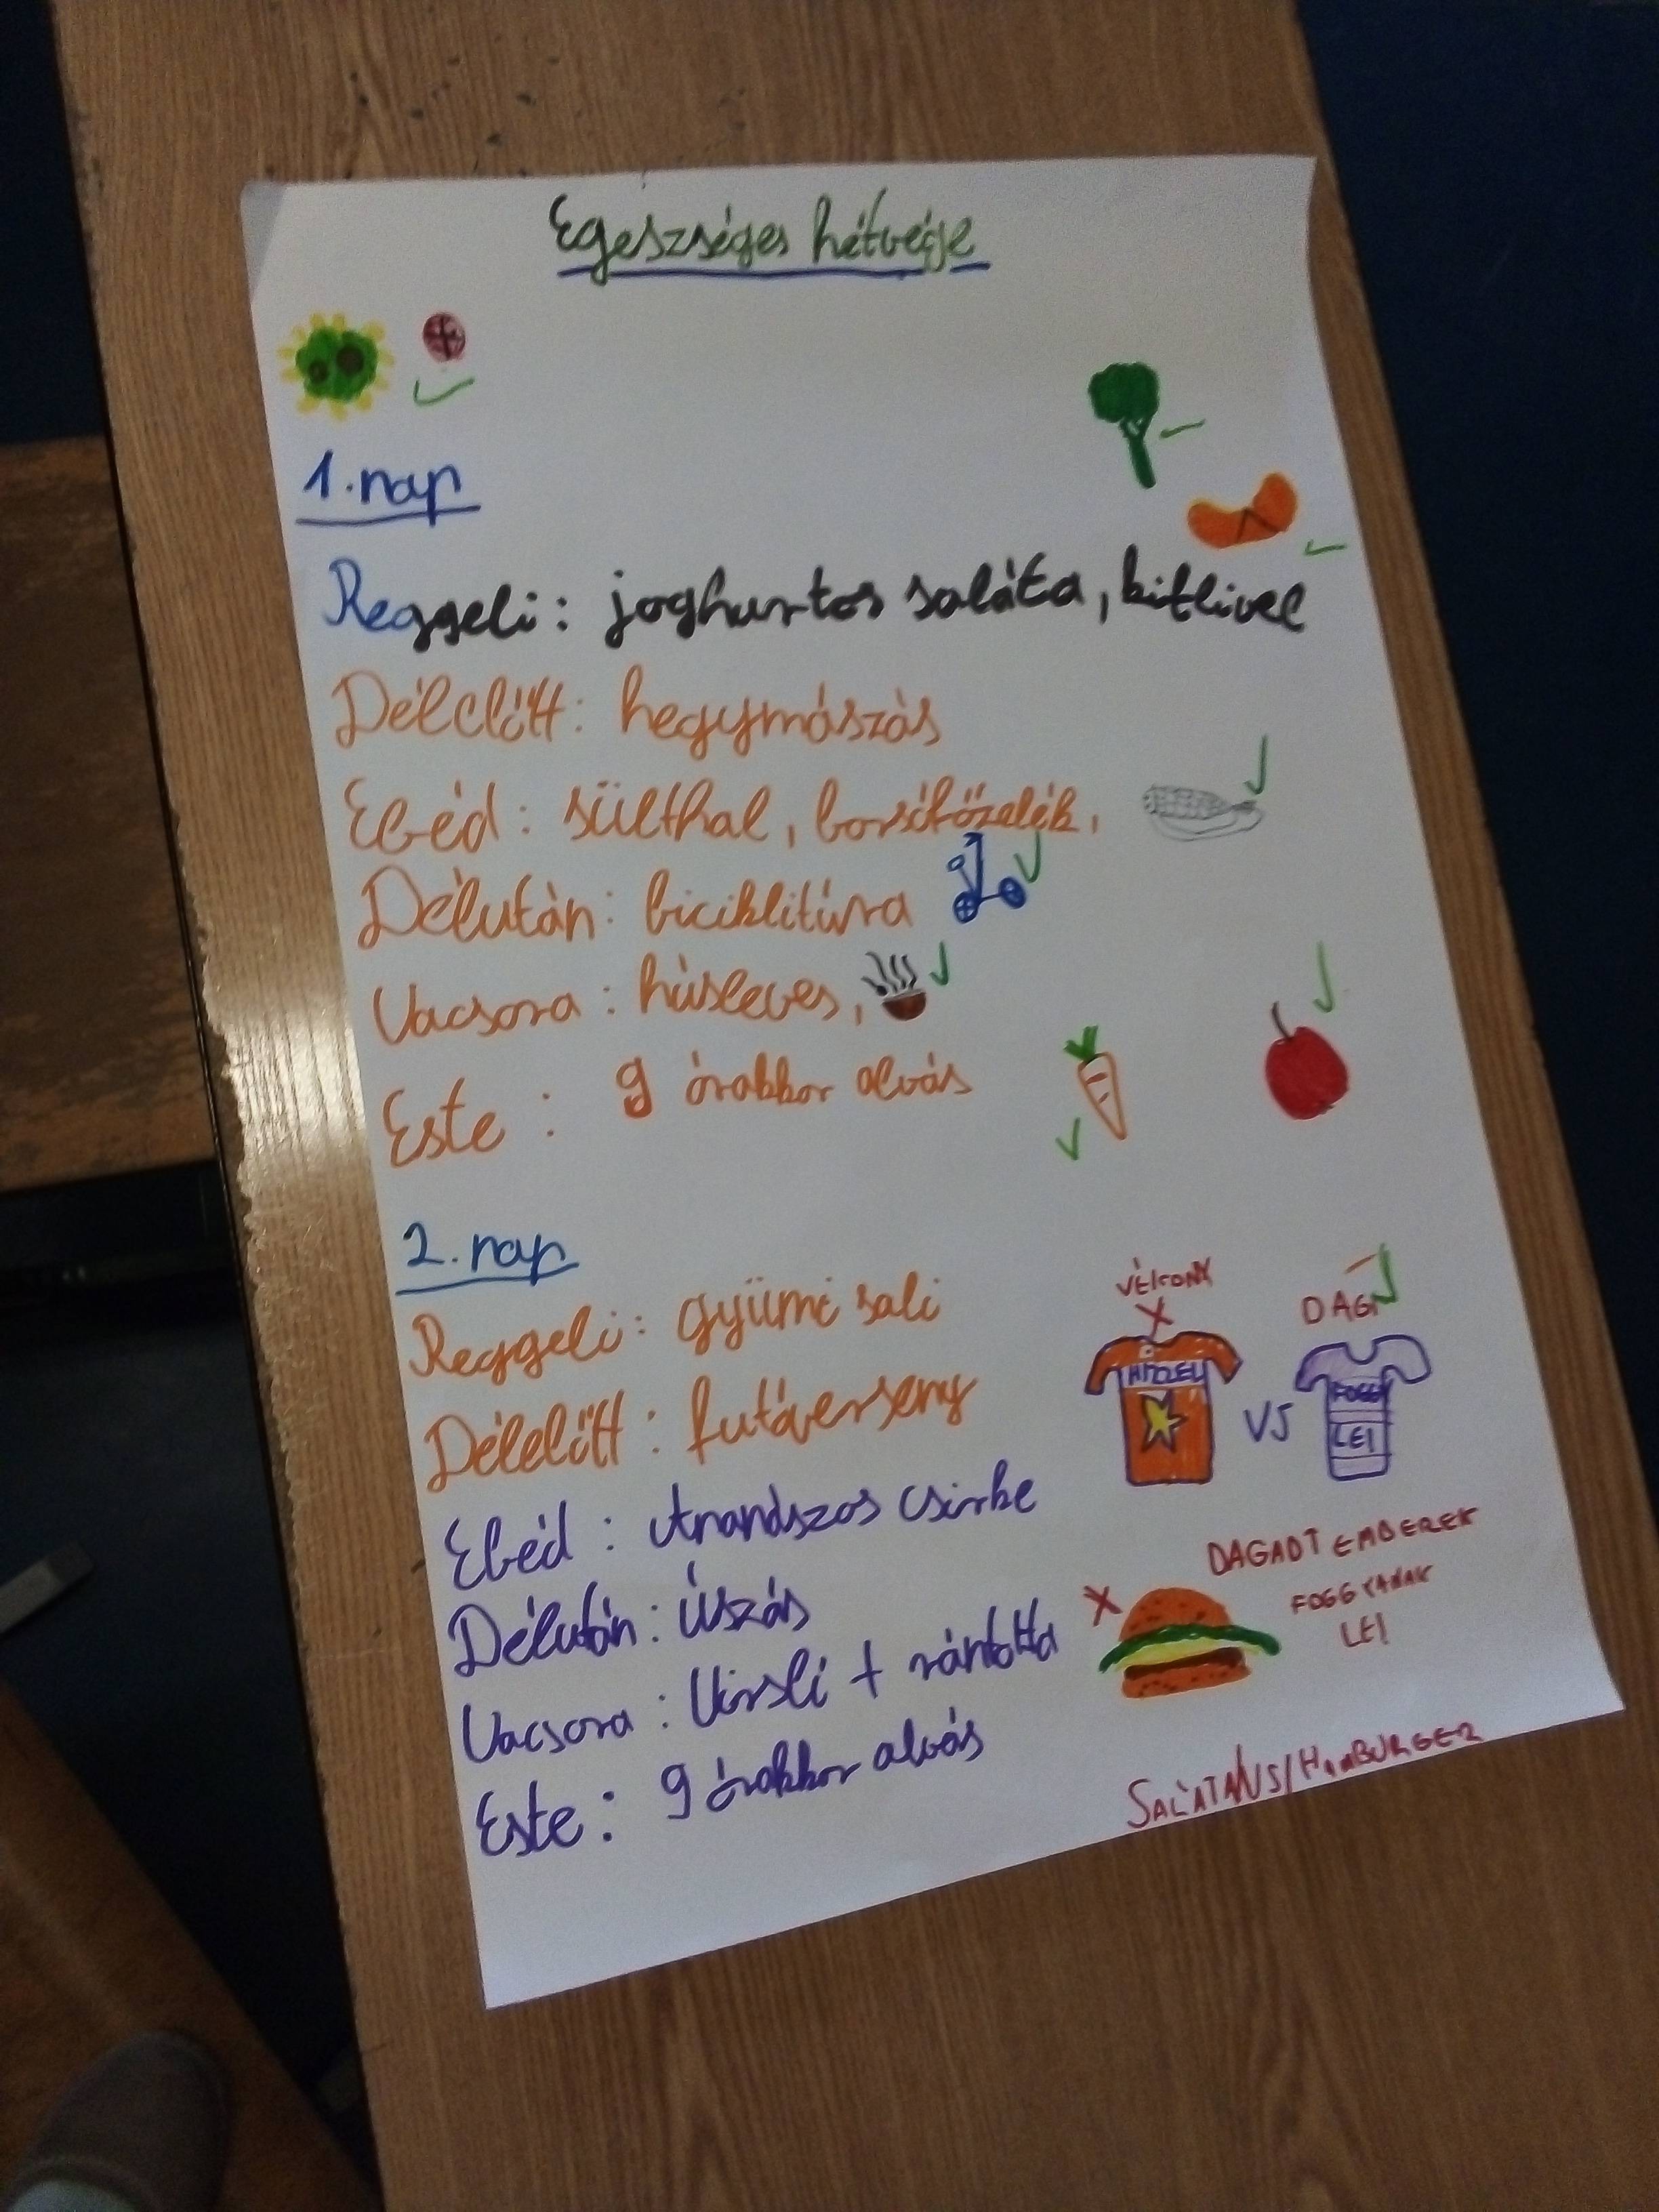 Egészséges hétvége
1. nap
Reggeli: joghurtos saláta, kiflivel
Délelőtt: hegymászás
Ebéd: sülthal, borsófőzelék,
Délután: biciklitúra
Vacsora: húsleves,
Este: 9 órakkor alvás
2. nap
Reggeli: gyümi sali
Délelőtt: futóverseny
Ebéd: Ananászos csirke
Délután: Úszás
Vacsora: Virsli + rántotta
Este: 9 órakkor alvás
VÉKONY
DAGI
HÍZZÁL
VS
FOGGY
LE!
DAGADT EMBEREK
FOGGYANAK
LE!
HAMBURGER